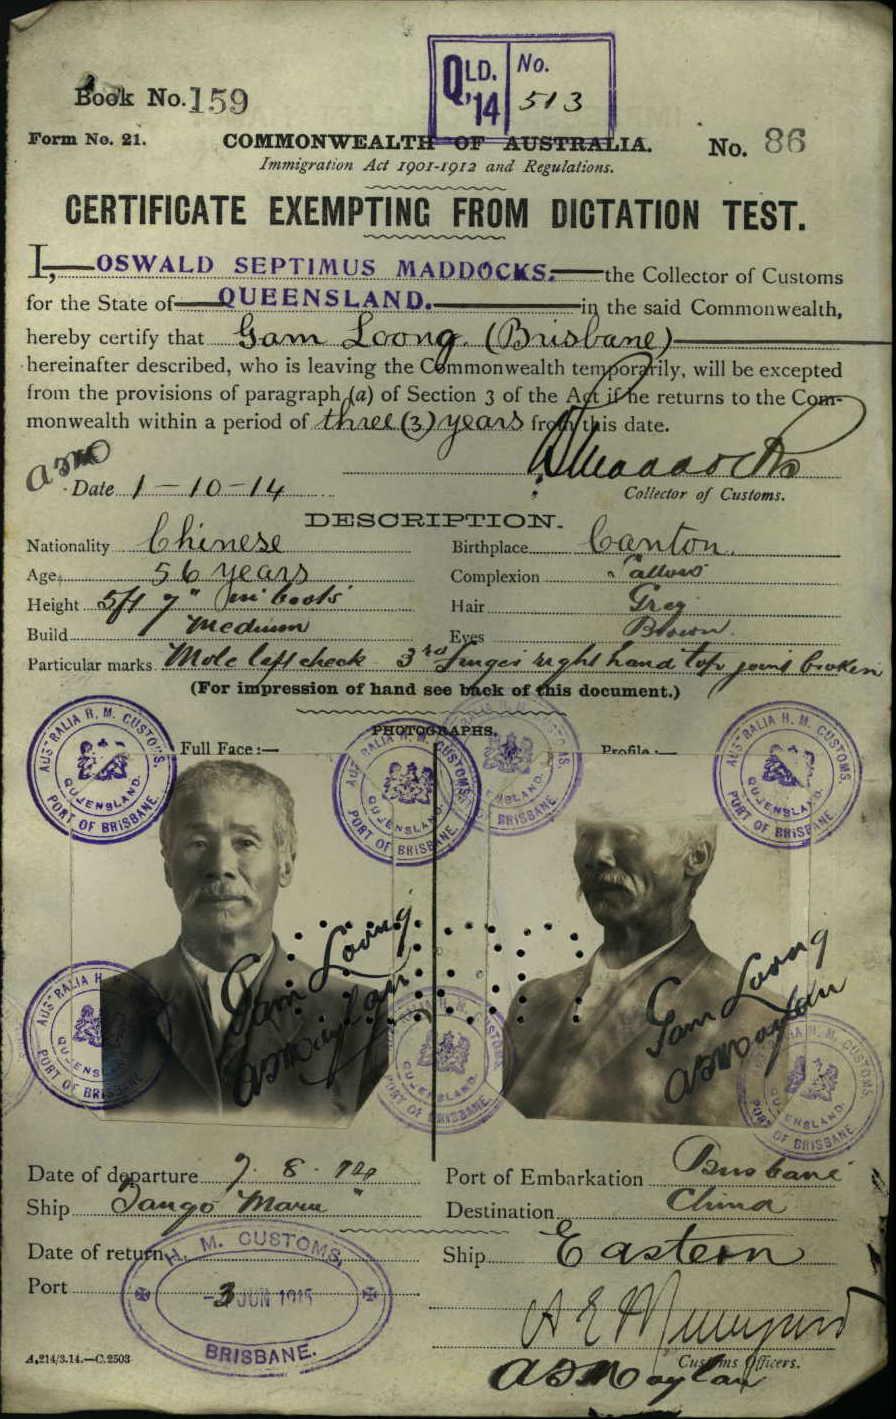 Book No. 159
QLD. '14 No. 513
Form No. 21.
COMMONWEALTH OF AUSTRALIA.
No. 86
Immigration Act 1901-1912 and Regulations.
CERTIFICATE EXEMPTING FROM DICTATION TEST.
I, OSWALD SEPTIMUS MADDOCKS. the Collector of Customs
for the State of QUEENSLAND. in the said Commonwealth,
hereby certify that Gam Loong. (Brisbane)
hereinafter described, who is leaving the Commonwealth temporarily, will be excepted
from the provisions of paragraph (a) of Section 3 of the Act if he returns to the Com-
monwealth within a period of three (3) years from this date.
Date 1-10-14
Collector of Customs.
DESCRIPTION.
Nationality Chinese
Birthplace Canton.
Age 56 years
Complexion Sallow
Height 5ft 7" in boots
Hair Grey
Build Medium
Eyes Brown.
Particular marks Mole left cheek 3rd finger right hand top joint broken
(For impression of hand see back of this document.)
PHOTOGRAPHS.
Full Face:—
Profile:—
AUSTRALIA H. M. CUSTOMS. QUEENSLAND. PORT OF BRISBANE.
AUSTRALIA H. M. CUSTOMS. QUEENSLAND. PORT OF BRISBANE.
AUSTRALIA H. M. CUSTOMS. QUEENSLAND. PORT OF BRISBANE.
Gam Loong
Gam Loong
Date of departure
Port of Embarkation Brisbane
Ship Tango Maru
Destination China
Date of return
Ship Eastern
Port
H. M. CUSTOMS,
-3 JUN 1915
BRISBANE.
Customs Officers.
A.214/3.14.—C.2503